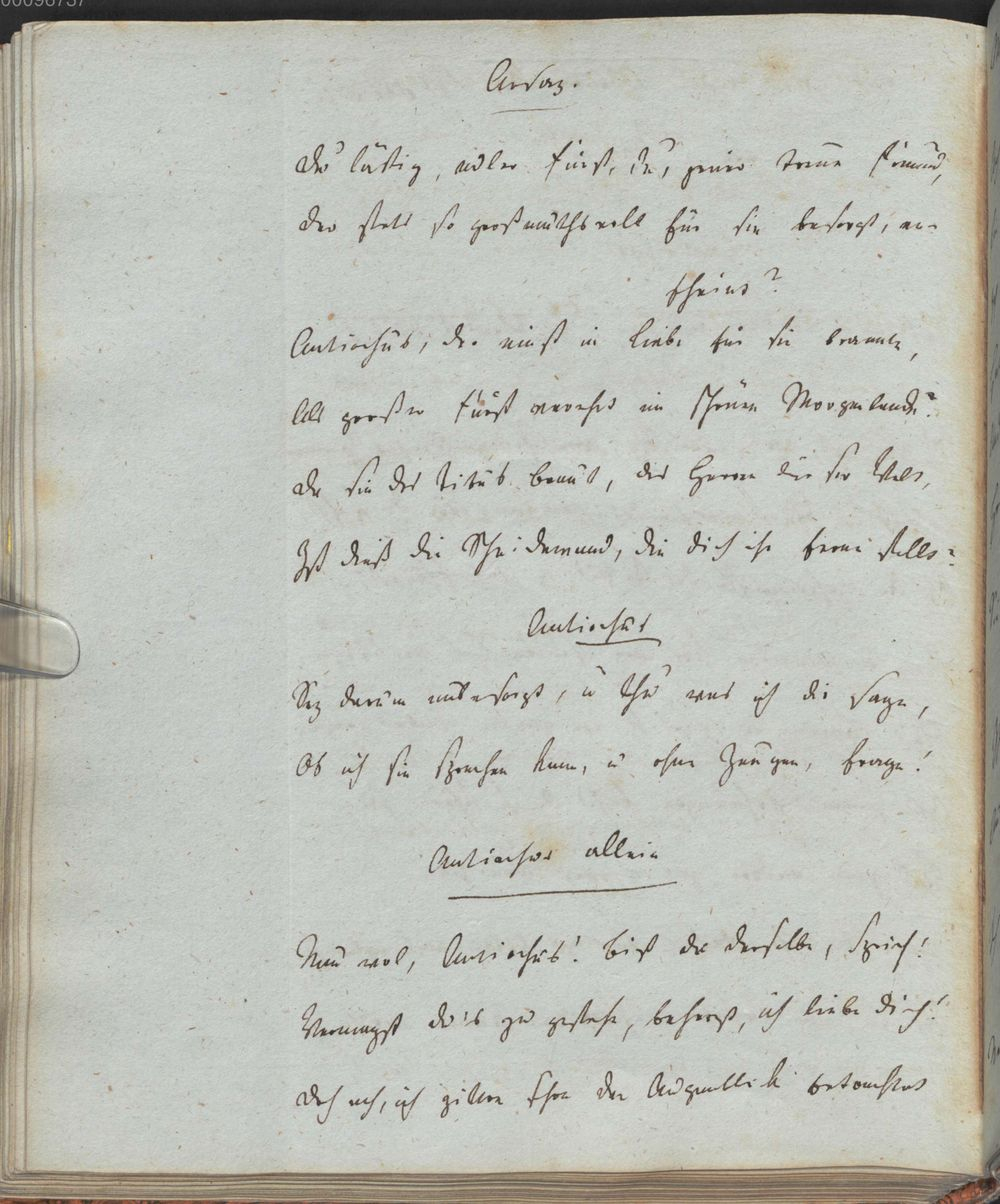 00096737
Arsaz.
Du lästig, edler Fürst, Du, jener treue Freund,
Der stets so großmuthsvoll für sie besorgt, er-
scheint?
Antiochus, der einst in Liebe für sie brannte,
Als großer Fürst verehrt im schönen Morgenlande?
Da sie des Titus Braut, des Herren dieser Welt,
Ist dieß die Scheidewand, die dich ihr ferne stellt?
Antiochus
Sey darum unbesorgt, u thu was ich dir sage,
Ob ich sie sprechen kann, u ohne Zeugen, frage!
Antiochus allein
Nun wol, Antiochus! bist du derselbe, sprich!
Vermagst du's zu gestehn, beherzt, ich liebe dich!
Doch ach, ich zittre schon den Augenblick betrachtet